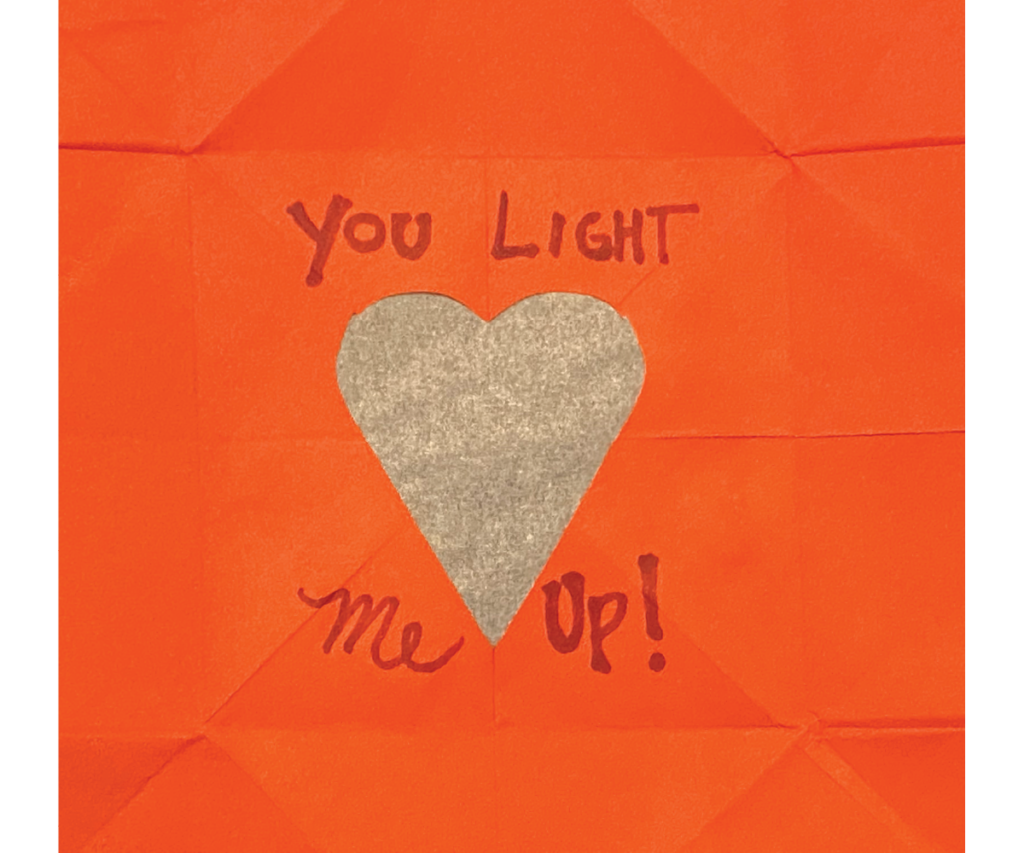 You Light
Me Up!